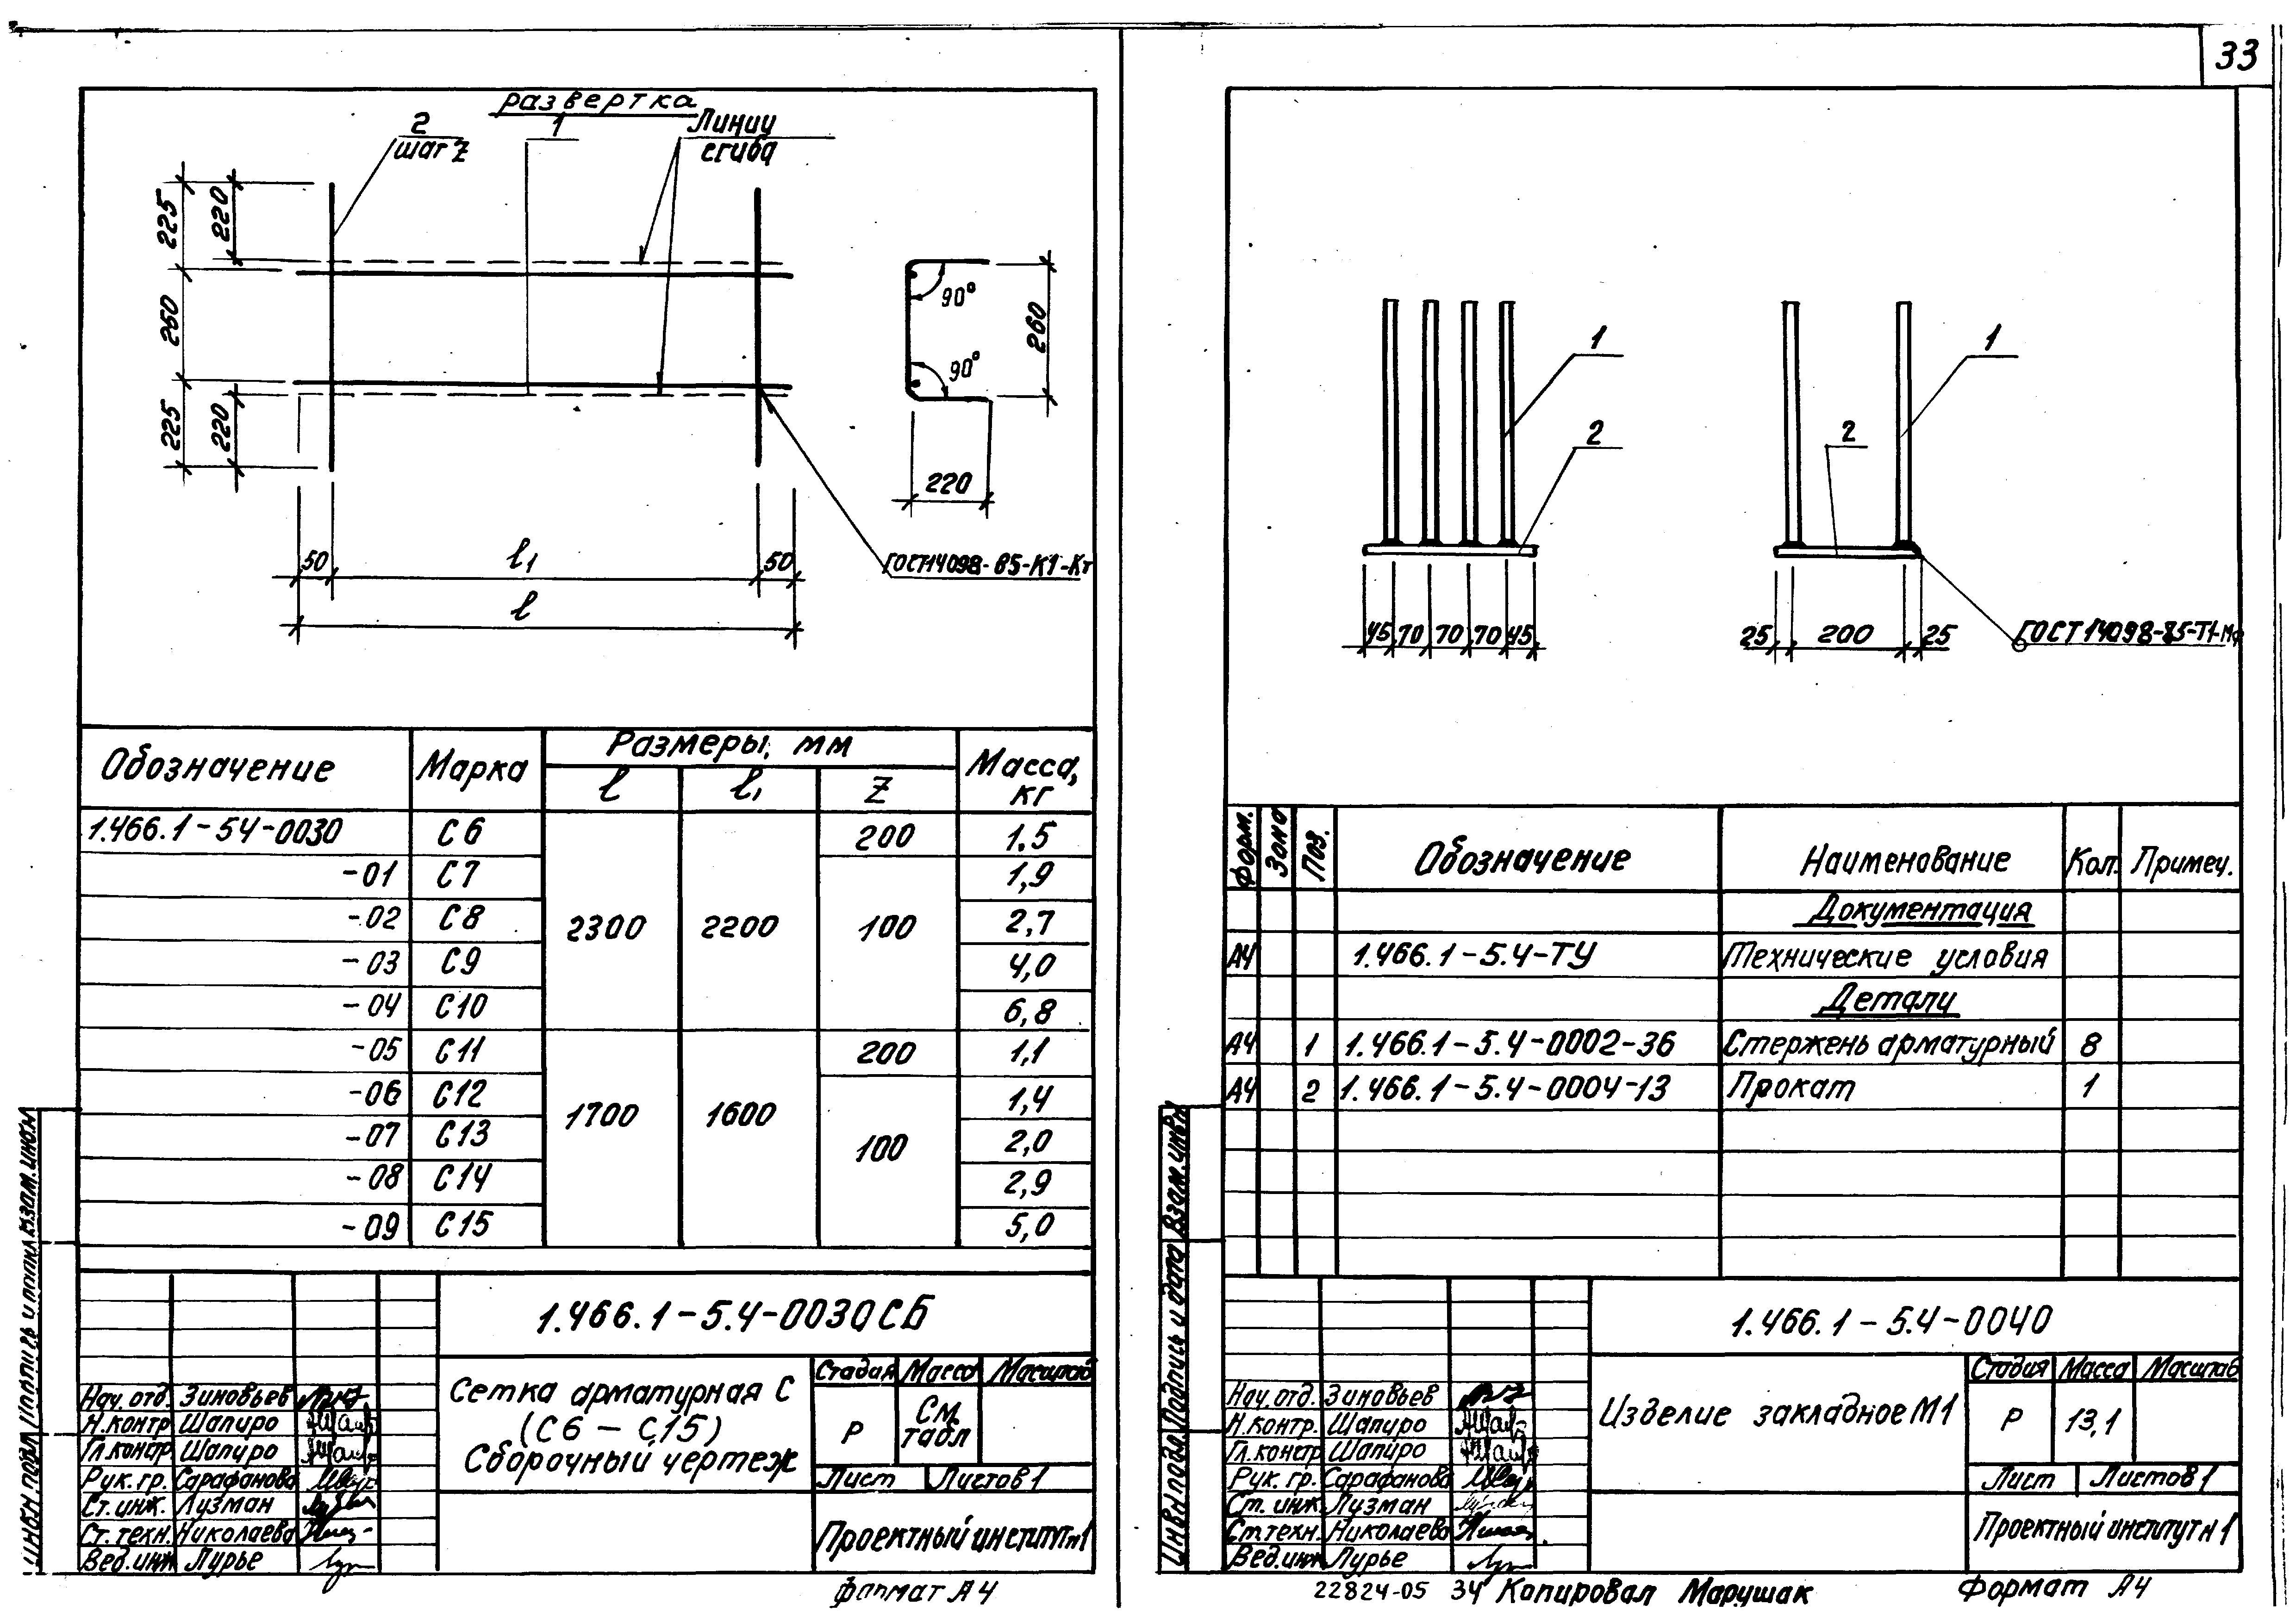 33
развертка
2
шаг Z
1
Линии
сгиба
225
220
260
225
220
90°
90°
260
220
50
l1
50
l
ГОСТ14098-85-К1-Кт
Обозначение
Марка
Размеры, мм
Масса,
кг
l
l1
Z
1.466.1-54-0030 С6 200 1.5
-01 С7 1,9
-02 С8 2300 2200 100 2,7
-03 С9 4,0
-04 С10 6,8
-05 С11 200 1,1
-06 С12 1,4
-07 С13 1700 1600 2,0
-08 С14 100 2,9
-09 С15 5,0
1.466.1-5.4-0030СБ
Сетка арматурная С
(С6 - С15)
Сборочный чертеж
Стадия Масса Масштаб
Р См. табл
Лист Листов 1
Проектный институт №1
Нач. отд. Зиновьев
Н.контр Шапиро
Гл.констр Шапиро
Рук. гр. Сарафанова
Ст. инж. Лузман
Ст. техн. Николаева
Вед.инж Лурье
Формат А4
1
2
1
2
45 70 70 70 45
25 200 25
ГОСТ14098-85-Т1-Мф
Форм. Зона Поз. Обозначение Наименование Кол. Примеч.
Документация
А4 1.466.1-5.4-ТУ Технические условия
Детали
А4 1 1.466.1-5.4-0002-36 Стержень арматурный 8
А4 2 1.466.1-5.4-0004-13 Прокат 1
1.466.1-5.4-0040
Изделие закладное М1
Стадия Масса Масштаб
Р 13,1
Лист Листов 1
Проектный институт №1
Нач. отд. Зиновьев
Н.контр. Шапиро
Гл. констр Шапиро
Рук. гр. Сарафанова
Ст. инж Лузман
Ст.техн. Николаева
Вед.инж Лурье
Инв.№ подл. Подпись и дата Взам.инв.№
22824-05 34 Копировал Марушак Формат А4